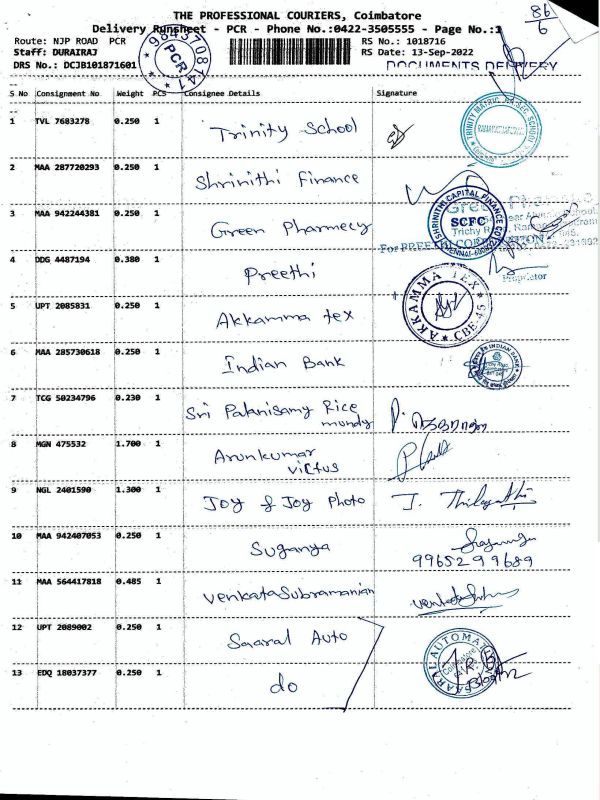 THE PROFESSIONAL COURIERS, Coimbatore
Delivery Runsheet - PCR - Phone No.:0422-3505555 - Page No.:1
86/6
Route: NJP ROAD PCR
RS No.: 1018716
Staff: DURAIRAJ
RS Date: 13-Sep-2022
DRS No.: DCJB101871601
DOCUMENTS DELIVERY
9843708141
PCR
S No Consignment No Weight PCS Consignee Details Signature
1 TVL 7683278 0.250 1 Trinity School
TRINITY MATRIC HR.SEC. SCHOOL
2 MAA 287720293 0.250 1 Shrinithi Finance
SHRINITHI CAPITAL FINANCE CO
SCFC
3 MAA 942244381 0.250 1 Green Pharmecy
Green
Trichy
For PREETHI CORPORATION
4 DDG 4487194 0.380 1 Preethi
Proprietor
5 UPT 2085831 0.250 1 Akkamma tex
AKKAMMA TEX
CBE-45
6 MAA 285730618 0.250 1 Indian Bank
INDIAN BANK
7 TCG 50234796 0.230 1 Sri Palanisamy Rice mundy
8 MGN 475532 1.700 1 Arunkumar victus
9 NGL 2401590 1.300 1 Joy & Joy Photo J. Thilagathi
10 MAA 942407053 0.250 1 Suganya
9965299689
11 MAA 564417818 0.485 1 VenkataSubramanian
12 UPT 2089002 0.250 1 Saaral Auto
SAARAL AUTOMATION
Coimbatore
13 EDQ 18037377 0.250 1 do